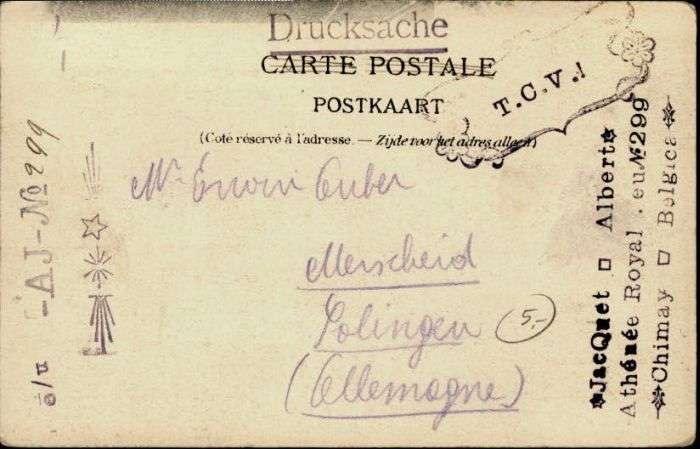 Drucksache
CARTE POSTALE
POSTKAART
(Coté réservé à l'adresse. — Zijde voor het adres alleen)
T.C.V.!
Mr Erwin
Merscheid
Solingen
(Allemagne)
5.-
AJ-No 299
JacQuet □ Albert
Athénée Royal . eu No 299
Chimay □ Belgica